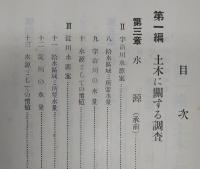 目次
第一編 土木に關する調査
第三章 水源(承前)
II 宇治川水源案
八、給水區域と所要水量
九、宇治川の水量
十、水源としての價値
III 淀川水源案
十一、給水區域と所要水量
十二、淀川の水量
十三、水源としての價値